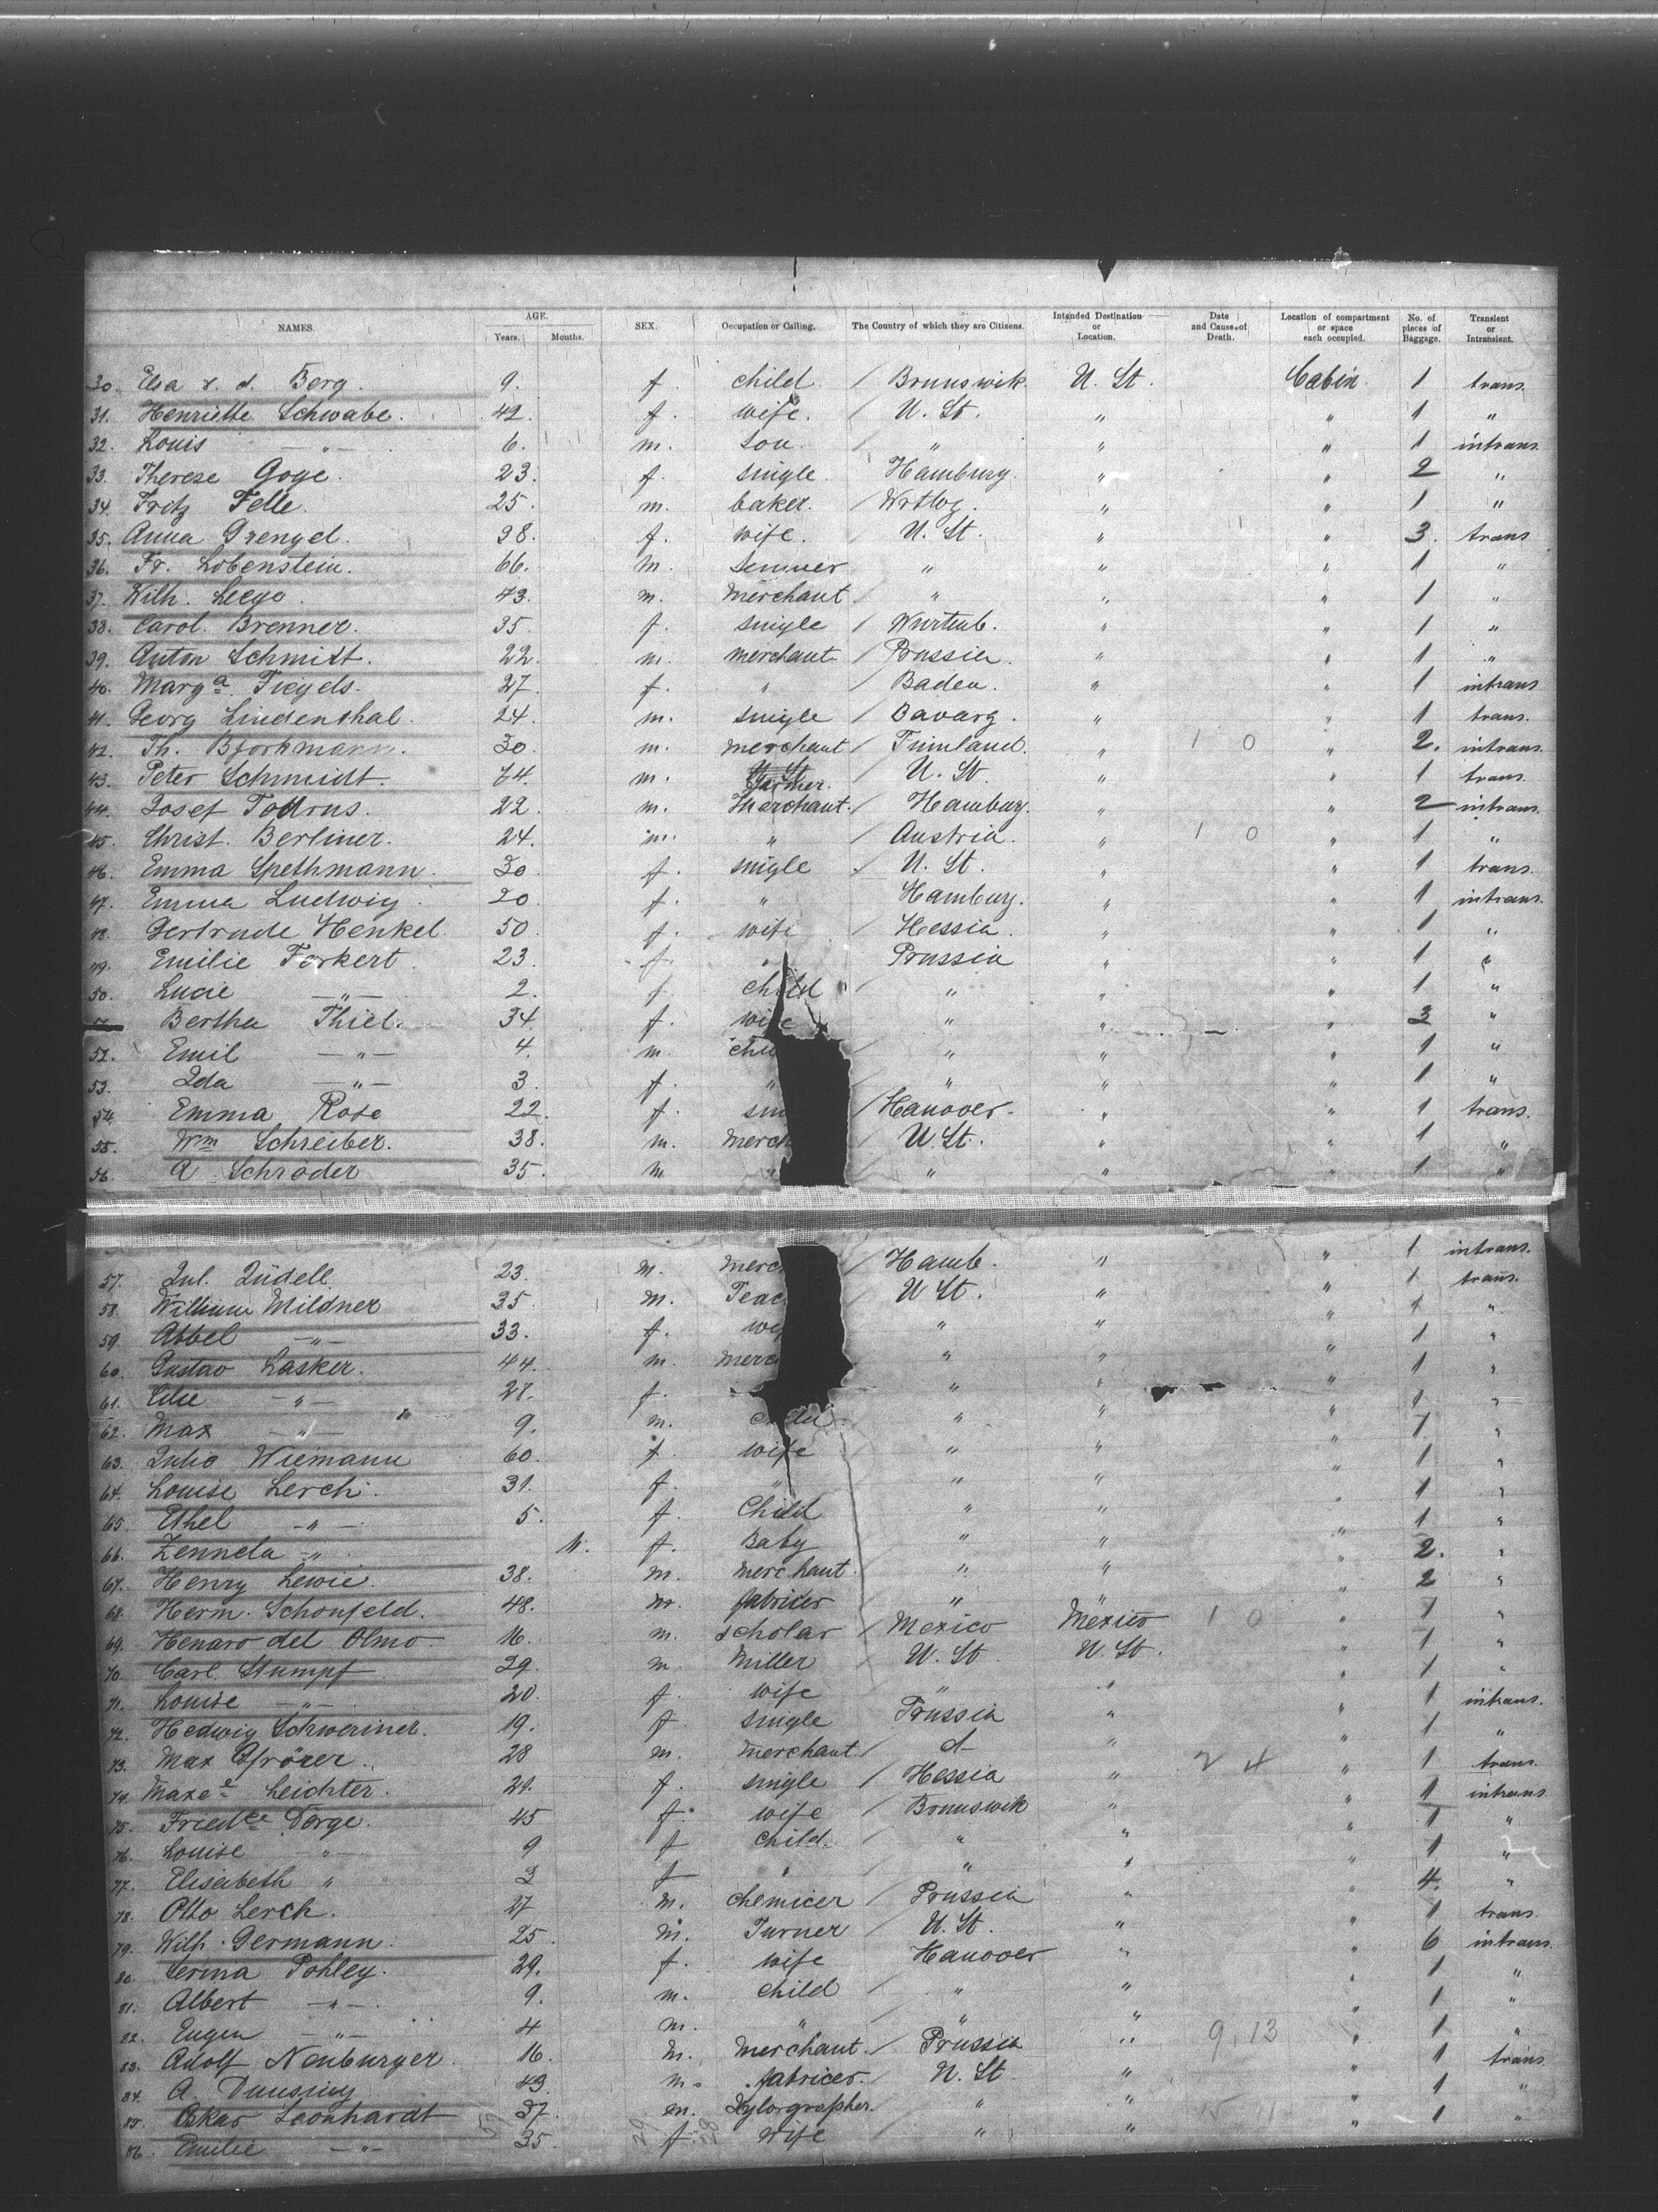 NAMES. AGE. Years. Months. SEX. Occupation or Calling. The Country of which they are Citizens. Intended Destination or Location. Date and Cause of Death. Location of compartment or space each occupied. No. of pieces of Baggage. Transient or Intransient.
30. Elsa v. d. Berg. 9. f. child / Brunswik U. St. Cabin 1 trans.
31. Henriette Schwabe. 42. f. wife. / U. St. " " 1 "
32. Louis —"— 6. m. son. " " " 1 intrans.
33. Therese Goge. 23. f. single. Hamburg. " " 2 "
34. Fritz Felle. 25. m. baker. / Wrtbg. " " 1 "
35. Anna Grengel. 38. f. wife. / U. St. " " 3. trans
36. Fr. Lobenstein. 66. m. " " " 1 "
37. Wilh. 43. m. Merchant. " " " 1 "
38. Carol. Brenner. 35. f. single / Wurtemb. " " 1 "
39. Anton Schmidt. 22. m. merchant / Prussia. " " 1 "
40. Marga. 27. f. " / Baden. " " 1 intrans
41. Georg Lindenthal. 24. m. single / Bavarg. " " 1 trans.
42. Th. Bjorkmann. 30. m. merchant / Finnland. " 1 0 " 2. intrans.
43. Peter Schmidt. m. Farmer. U. St. " " 1 trans.
44. Josef 22. m. Merchant. / Hamburg. " " 2 intrans.
45. Christ. Berliner. 24. m. " / Austria. " 1 0 " 1 "
46. Emma Spethmann. 30. f. single / U. St. " " 1 trans.
47. Emma Ludwig. 20. f. " Hamburg. " " 1 intrans.
48. Gertrude Henkel. 50. f. wife / Hessia. " " 1 "
49. Emilie Forkert. 23. f. " Prussia " " 1 "
50. Lucie —"— 2. f. child / " " " 1 "
Bertha Thiel. 34. f. wife " " " 3 "
52. Emil —"— 4. m. " " " 1 "
53. Ida —"— 3. f. " " " " 1 "
54. Emma Rose 22. f. / Hanover. " " 1 trans.
55. Wm Schreiber. 38. m. Merch U. St. " " 1 "
56. A. Schroder 35. m " " " " 1 "
57. Jul. Jüdell. 23. m. Merc / Hamb. " " 1 intrans.
58. William Mildner 35. m. Teac U St. " " 1 trans.
59. Abbel —"— 33. f. " " " 1 "
60. Gustav Lasker. 44. m. merc " " " 1 "
61. —"— 27. f. " " " 1 "
62. Max —"— 9. m. child " " " 1 "
63. Julia Wiemann 60. f. wife " " " 1 "
64. Louise Lerch. 31. f. " " " " 1 "
65. Ethel —"— 5. f. Child " " " 1 "
66. Zennela —"— 11. f. Baby " " " 1 "
67. Henry Lewie. 38. m. Merchant. " " " 2. "
68. Herm. Schonfeld. 48. m. fabricer " " " 2 "
69. Henaro del Olmo 16. m. scholar / Mexico Mexico 1 0 " 1 "
70. Carl Stumpf 29. m. Miller U. St. U. St. " 1 "
71. Louise —"— 20. f. wife " " " 1 "
72. Hedwig Schweriner. 19. f. single Prussia " " 1 intrans.
73. Max Gfrörer. 28 m. Merchant. / d " 2 4 " 1 "
74. Leichter. 21. f. single / Hessia " " 1 trans.
75. Friedke Dorge. 45 f. wife / Brunswik " " 1 intrans.
76. Louise —"— 9 f child. / " " " 1 "
77. Elisabeth " f " " " " 1 "
78. Otto Lerch. 27 m. chemicer / Prussia " " 4. "
79. Wilh. Germann. 25. m. Turner / U. St. " " 1 trans.
80. Pohley. 29. f. wife Hanover " " 6 intrans.
81. Albert —"— 9. m. child " " " 1 "
82. Eugen —"— 4 m. " " " " 1 "
83. Adolf Neuburger. 16. m. Merchant. / Prussia " 9.13 " 1 "
84. A. 49. m. fabricer. / U. St. " " 1 trans
85. Oskar Leonhardt 37. m. Xylorgrapher. " " " 1 "
86. Emilie —"— 35. f. Wife " " " 1 "